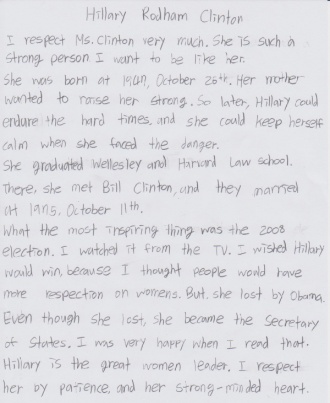 Hillary Rodham Clinton
I respect Ms. Clinton very much. She is such a
strong person I want to be like her.
She was born at 1947, October 26th. Her mother
wanted to raise her strong. So later, Hillary could
endure the hard times, and she could keep herself
calm when she faced the danger.
She graduated Wellesley and Harvard Law school.
There, she met Bill Clinton, and they married
at 1975. October 11th.
What the most inspiring thing was the 2008
election. I watched it from the TV. I wished Hillary
would win, because I thought people would have
more respection on womens. But, she lost by Obama.
Even though she lost, she became the Secretary
of States. I was very happy when I read that.
Hillary is the great women leader. I respect
her by patience, and her strong-minded heart.